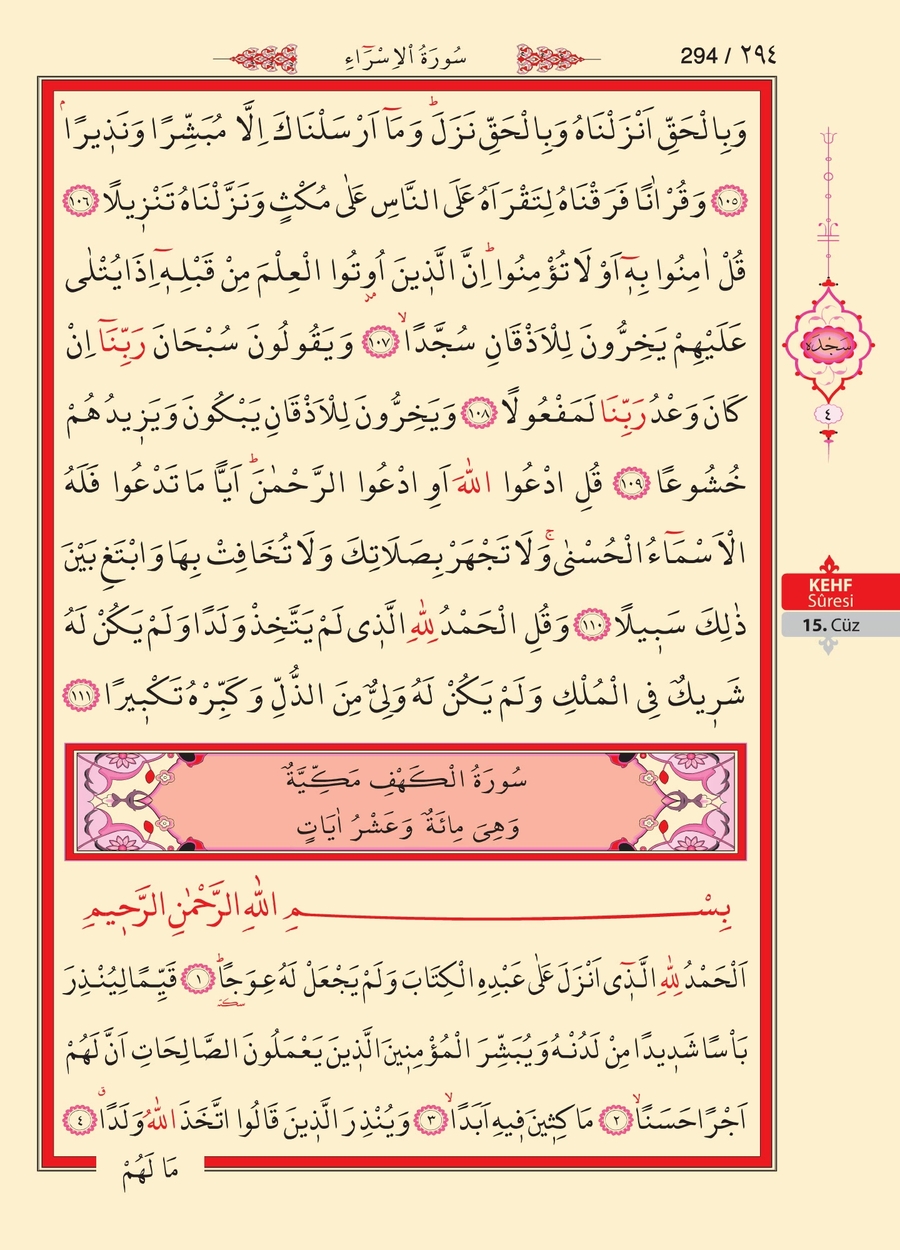 294 / ٢٩٤
سُورَةُ الْاِسْرَٓاءِ
وَبِالْحَقِّ اَنْزَلْنَاهُ وَبِالْحَقِّ نَزَلَۜ وَمَٓا اَرْسَلْنَاكَ اِلَّا مُبَشِّرًا وَنَذ۪يرًاۢ
﴿١٠٥﴾ وَقُرْاٰنًا فَرَقْنَاهُ لِتَقْرَاَهُ عَلَى النَّاسِ عَلٰى مُكْثٍ وَنَزَّلْنَاهُ تَنْز۪يلًا ﴿١٠٦﴾
قُلْ اٰمِنُوا بِه۪ٓ اَوْ لَا تُؤْمِنُواۜ اِنَّ الَّذ۪ينَ اُو۫تُوا الْعِلْمَ مِنْ قَبْلِه۪ٓ اِذَا يُتْلٰى
عَلَيْهِمْ يَخِرُّونَ لِلْاَذْقَانِ سُجَّدًاۙ ﴿١٠٧﴾ وَيَقُولُونَ سُبْحَانَ رَبِّنَٓا اِنْ
كَانَ وَعْدُ رَبِّنَا لَمَفْعُولًا ﴿١٠٨﴾ وَيَخِرُّونَ لِلْاَذْقَانِ يَبْكُونَ وَيَز۪يدُهُمْ
خُشُوعًا ﴿١٠٩﴾ قُلِ ادْعُوا اللّٰهَ اَوِ ادْعُوا الرَّحْمٰنَۜ اَيًّا مَا تَدْعُوا فَلَهُ
الْاَسْمَٓاءُ الْحُسْنٰىۚ وَلَا تَجْهَرْ بِصَلَاتِكَ وَلَا تُخَافِتْ بِهَا وَابْتَغِ بَيْنَ
ذٰلِكَ سَب۪يلًا ﴿١١٠﴾ وَقُلِ الْحَمْدُ لِلّٰهِ الَّذ۪ى لَمْ يَتَّخِذْ وَلَدًا وَلَمْ يَكُنْ لَهُ
شَر۪يكٌ فِى الْمُلْكِ وَلَمْ يَكُنْ لَهُ وَلِىٌّ مِنَ الذُّلِّ وَكَبِّرْهُ تَكْب۪يرًا ﴿١١١﴾
سُورَةُ الْكَهْفِ مَكِّيَّةٌ
وَهِىَ مِائَةٌ وَعَشْرُ اٰيَاتٍ
بِسْمِ اللّٰهِ الرَّحْمٰنِ الرَّح۪يمِ
اَلْحَمْدُ لِلّٰهِ الَّذ۪ٓى اَنْزَلَ عَلٰى عَبْدِهِ الْكِتَابَ وَلَمْ يَجْعَلْ لَهُ عِوَجًاۜ ﴿١﴾ قَيِّمًا لِيُنْذِرَ
بَأْسًا شَد۪يدًا مِنْ لَدُنْهُ وَيُبَشِّرَ الْمُؤْمِن۪ينَ الَّذ۪ينَ يَعْمَلُونَ الصَّالِحَاتِ اَنَّ لَهُمْ
اَجْرًا حَسَنًاۙ ﴿٢﴾ مَاكِث۪ينَ ف۪يهِ اَبَدًاۙ ﴿٣﴾ وَيُنْذِرَ الَّذ۪ينَ قَالُوا اتَّخَذَ اللّٰهُ وَلَدًاۗ ﴿٤﴾
مَا لَهُمْ
سَجْدَه
٤
KEHF
Sûresi
15. Cüz